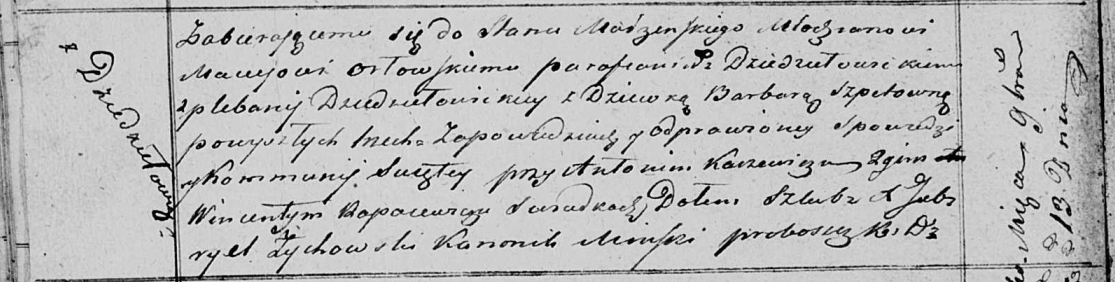 z Dziedziełowicz
Zabierającemu się do Stanu Małżeńskiego Młodzianowi
Maciejowi Orłowskiemu parafianowi Dziedziełowickiemu
z plebanij Dziedziełowickiey z Dziewką Barbarą Szpetowną
powyszłych trzech Zapowiedziach y odprawioney Spowiedzi
y kommunij Swiętey przy Antonim Karzewiczu
Wincentym Kopacewiczu Swiadkach Dałem Szlub X Gab
ryel Żychowski Kanonik Minski proboszcz
Mięca
1813 dnia